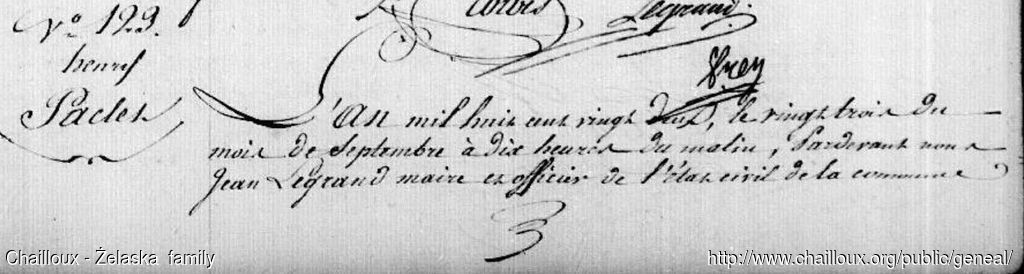 N.º 129.
henry
Paclet
Corbes
Legrand.
Frey
L'An mil huit cent vingt deux, le vingt trois du
mois de Septembre à dix heures du matin, Pardevant nous
Jean Legrand maire et officier de l'état civil de la commune
Chailloux - Żelaska family
http://www.chailloux.org/public/geneal/